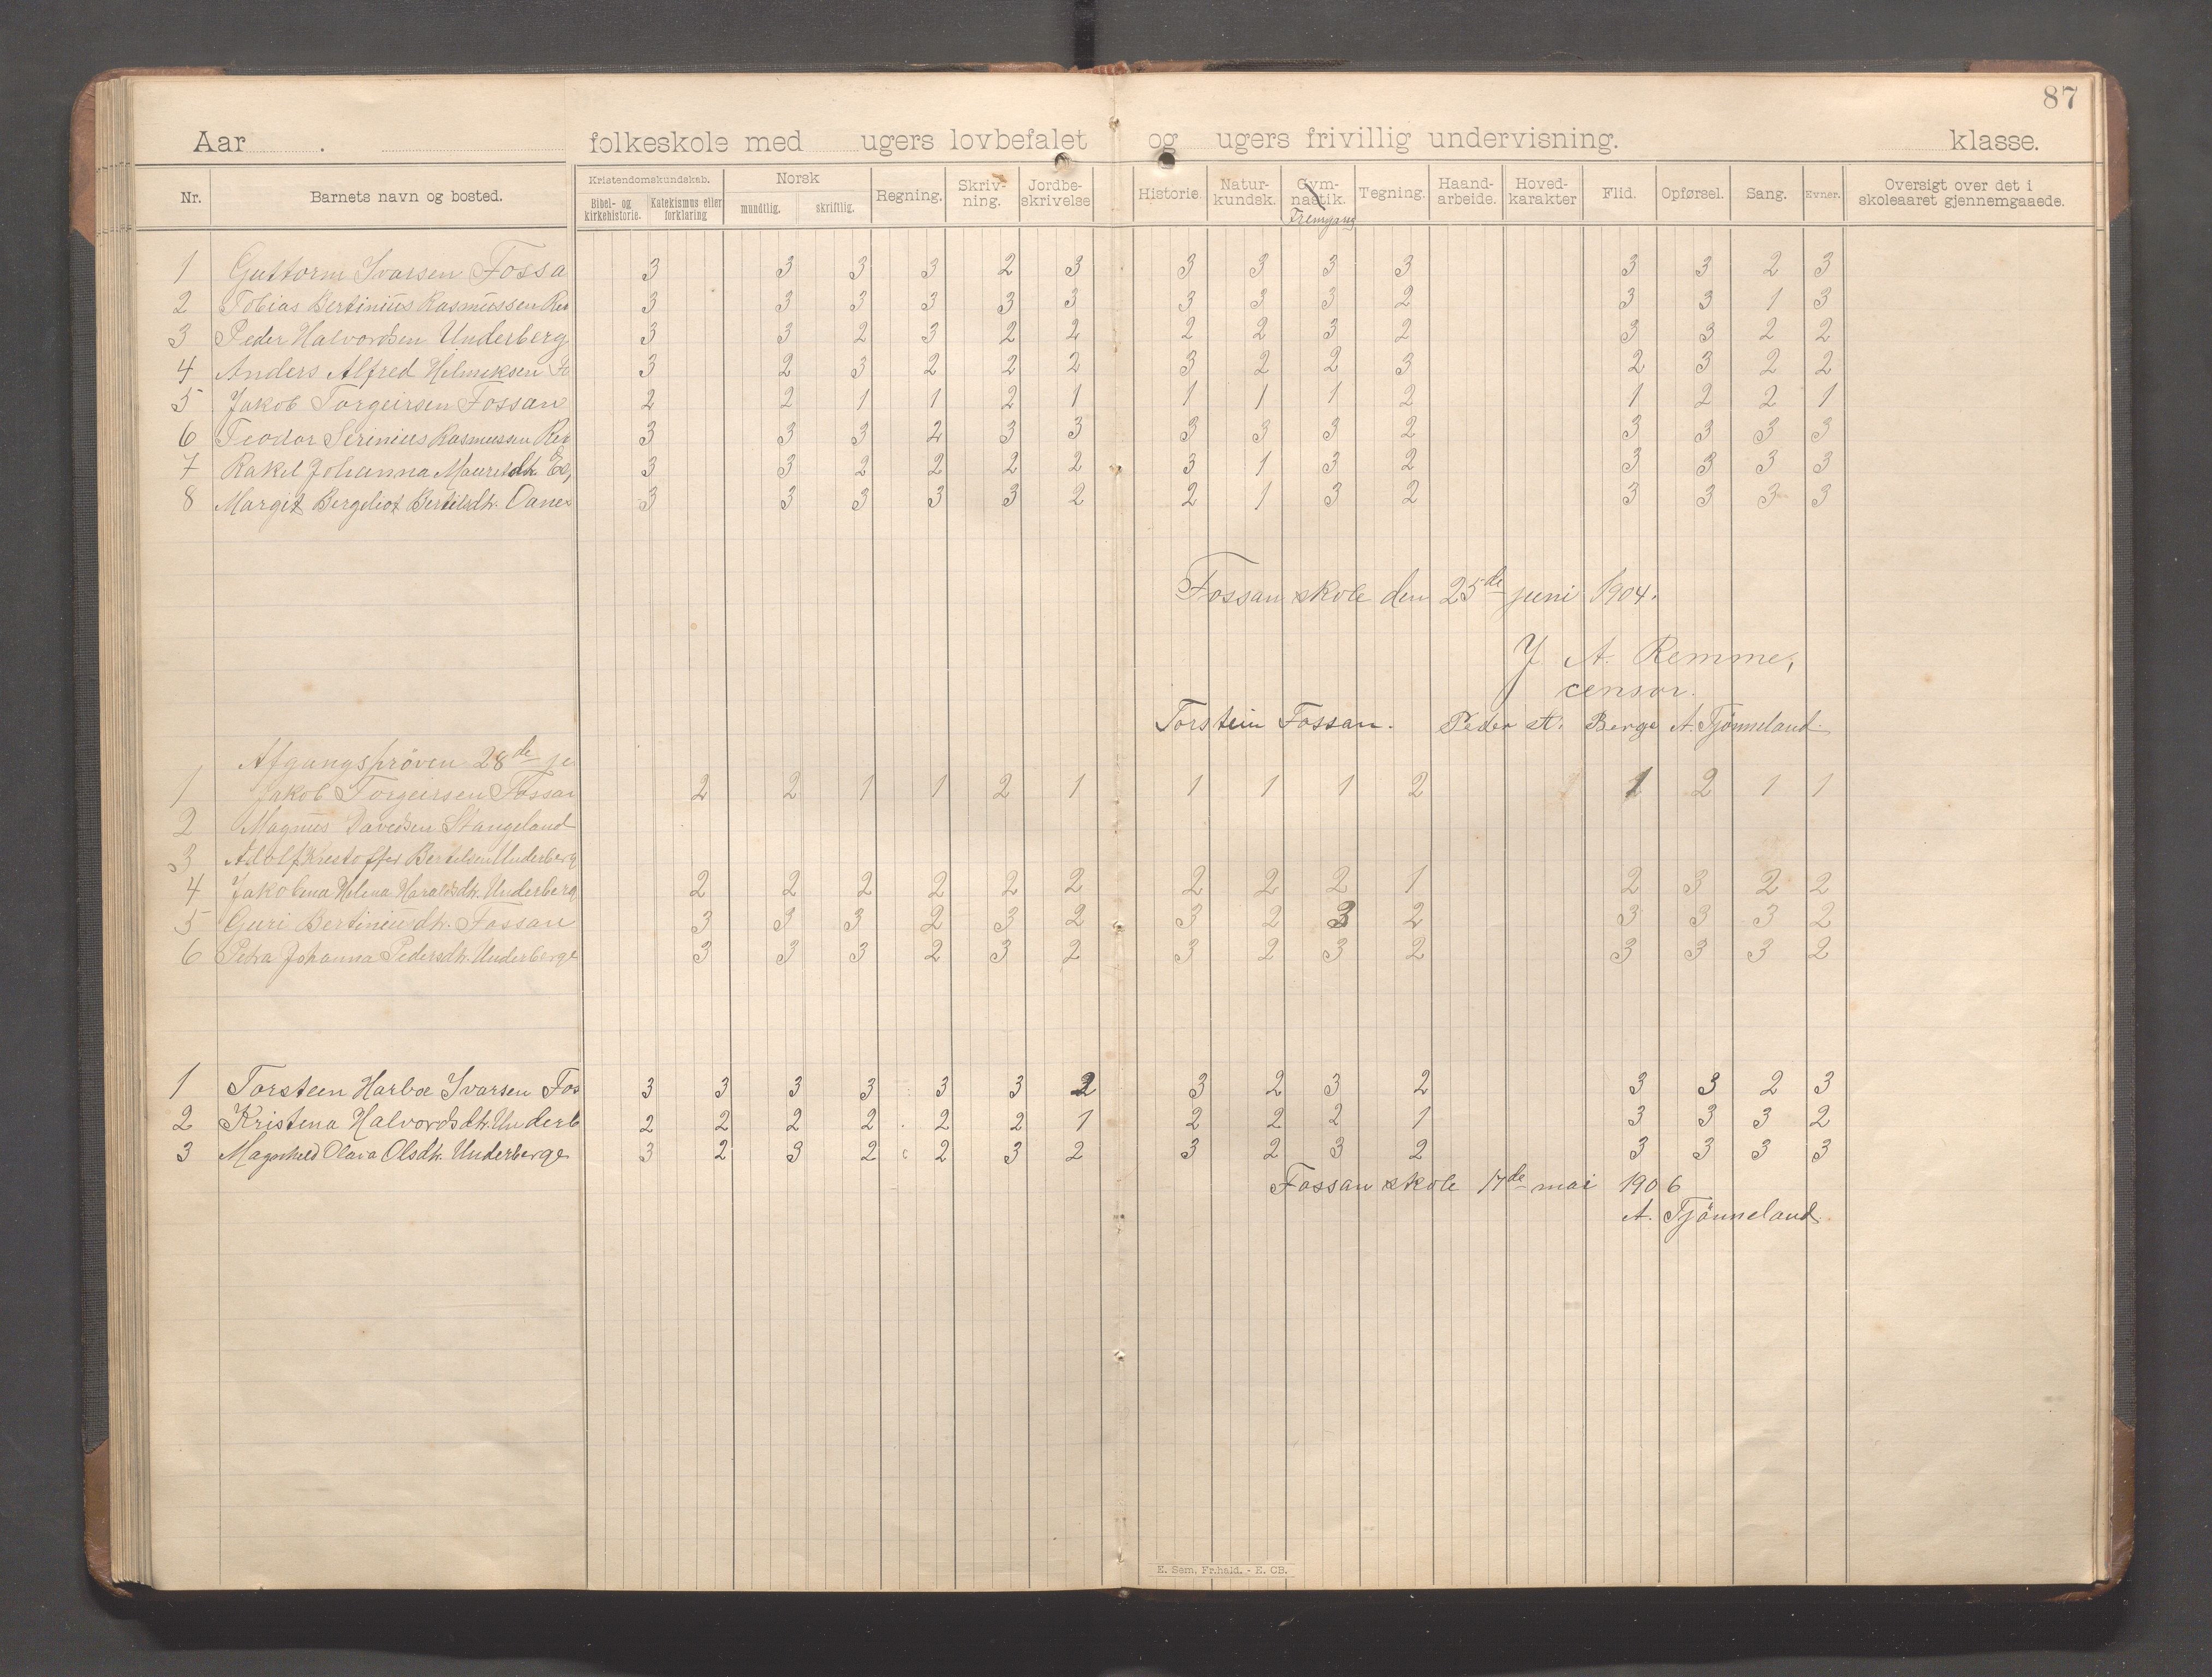 87
Aar . folkeskole med ugers lovbefalet og ugers frivillig undervisning. klasse.
Nr. Barnets navn og bosted. Kristendomskundskab. Bibel- og kirkehistorie. Katekismus eller forklaring Norsk mundtlig. skriftlig. Regning. Skriv-ning. Jordbe-skrivelse Historie. Natur-kundsk. Gym-nastik. Fremgang Tegning. Haand-arbeide. Hoved-karakter Flid. Opførsel. Sang. Evner. Oversigt over det i skoleaaret gjennemgaaede.
1 Guttorm Ivarsen Fossa 3 3 3 3 2 3 3 3 3 3 3 3 2 3
2 Tobias Bertinius Rasmussen 3 3 3 3 3 3 3 3 3 2 3 3 1 3
3 Peder Halvordsen Underberg 3 3 2 3 2 2 2 2 3 2 3 3 2 2
4 Anders Alfred Helmeksen Fo 3 2 3 2 2 2 3 2 2 3 2 3 2 2
5 Jakob Torgeirsen Fossan 2 2 1 1 2 1 1 1 1 2 1 2 2 1
6 Teodor Serinius Rasmussen 3 3 3 2 3 3 3 3 3 2 3 3 3 3
7 Rakel Johanna 3 3 2 2 2 2 3 1 3 2 3 3 3 3
8 Margit Bergeliot Bertelsdtr. 3 3 3 3 3 2 2 1 3 2 3 3 3 3
Fossan skole den 25de juni 1904.
J A. Remme,
censor.
Torstein Fossan. Peder A. Berge A. Tjønneland.
Afgangsprøven 28de
1 Jakob Torgeirsen Fossan 2 2 1 1 2 1 1 1 1 2 1 2 1 1
2 Magnus Davedsen Stangeland
3 Adolf Krestoffer Bertelsen Underberge
4 Jakobina Helena Haraldsdtr. Underberg 2 2 2 2 2 2 2 2 2 1 2 3 2 2
5 Guri Bertiniusdtr. Fossan 3 3 3 2 3 2 3 2 3 2 3 3 3 2
6 Petra Johanna Pedersdtr. Underberge 3 3 3 2 3 2 3 2 3 2 3 3 3 2
1 Torsteen Harboe Ivarsen Fos 3 3 3 3 3 3 2 3 2 3 2 3 3 2 3
2 Kristena Halvordsdtr. Underb 2 2 2 2 2 2 1 2 2 2 1 3 3 3 2
3 Magnheld Olava Olsdtr. Underberge 3 2 3 2 2 3 2 3 2 3 2 3 3 3 3
Fossan skole 17de mai 1906
A. Tjønneland.
E. Sem, Fr.hald. - E. CB.